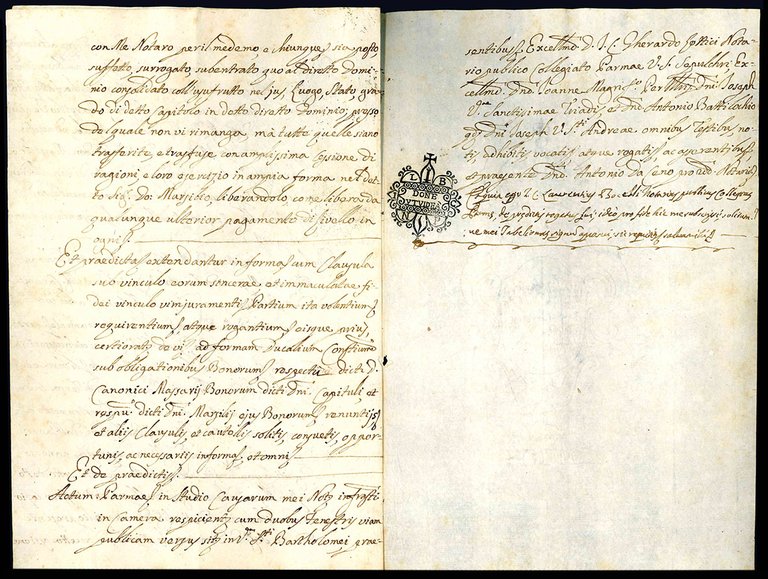 con Me Notaro per il medemo e chiunque sia posto,
suffetto, surrogato, subentrato quo al diretto Domi-
nio consolidato coll'usufrutto nel jus Luogo, Stato, gra-
do di detto Capitolo in detto diretto Dominio; presso
del quale non vi rimanga, mà tutte quelle siano
trasferite, e trasfuse con amplissima Cessione di
ragioni, e loro esercizio in ampia forma nel det-
to Sig.r Do: Marsilio, liberandolo, come libera da
qualunque ulterior pagamento di livello in
Et praedicta extendantur in forma cum Clausula
sub vinculo eorum sincerae, et immaculatae fi-
dei vinculo juramenti Partium ita volentium,
requirentium, atque rogantium, eisque prius,
certioratis de vi, ad formam Ducalium Constium
sub obligationibus Bonorum respectu dicti D.
Canonici Massarij Bonorum dicti Dni. Capituli, et
respu. dicti Dni. Marsilij ejus Bonorum, renuntijs,
et alijs Clausulis, et cautellis solitis, consuetis, oppor-
tunis, ac necessarijs in forma, et omni
Et de praedictis.
Actum Parmae in Studio Causarum mei Notij infrasti.
in Camera respiciente cum duobus Fenestris viam
publicam versus sita in V.a Sti. Bartholomei prae-
sentibus Excellmo D. J. C. Gherardo Notа-
rio publico Collegiato Parmae V.a S. Sepulchri Ex-
cellmo Dno. Joanne Perillri Dni. Joseph
V.a Sanctissimae Triadis, et Dno. Antonio Battilochio
q. Dni. Joseph V.a S. Andreae omnibus Testibus no-
tis adhibitis vocatis, atque rogatis, ac asserentibus,
et praesente Dno. Antonio Da Seno Notario
L B
DONEC
VTVDES
N
Et quia ego J. C. Laurentius notarius publicus Collegiatus
Parmae de praedictis rogatus fui ideo pro fide hic me subscripsi solitum
que mei Tabelionatus signum apposui